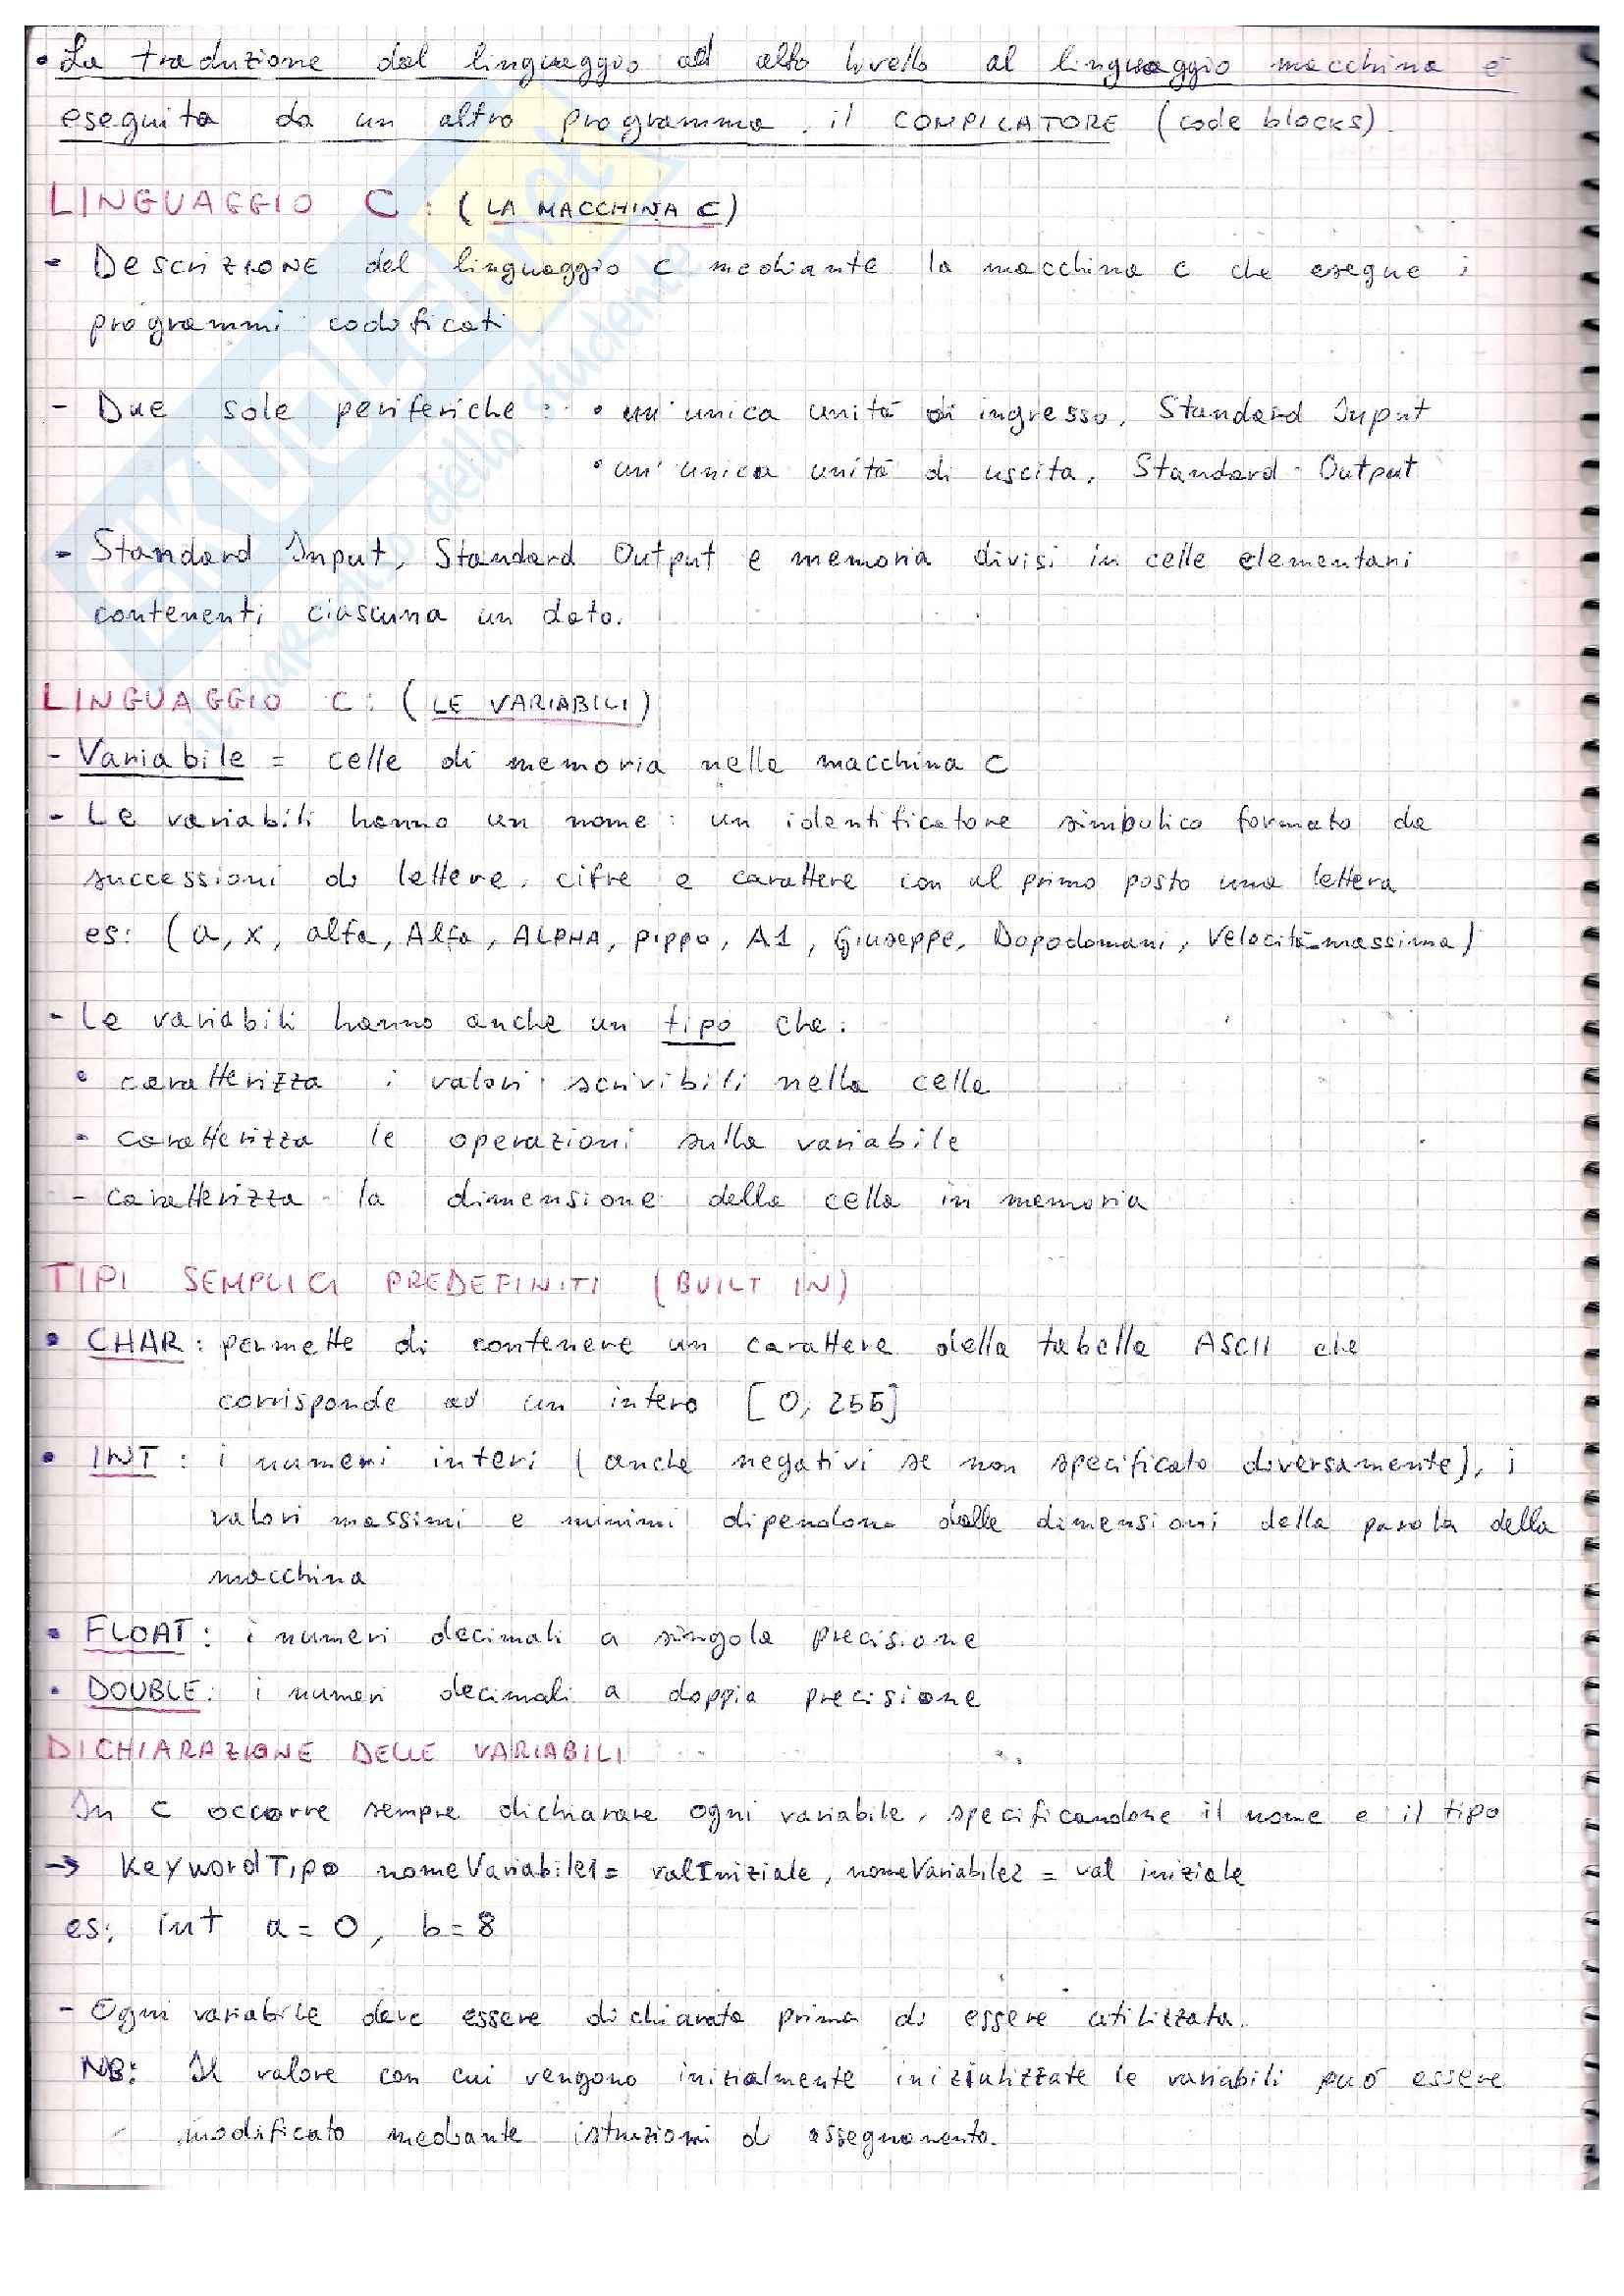 • La traduzione dal linguaggio ad alto livello al linguaggio macchina è
eseguita da un altro programma, il COMPILATORE (code blocks).
LINGUAGGIO C: (LA MACCHINA C)
- Descrizione del linguaggio C mediante la macchina C che esegue i
programmi codificati
- Due sole periferiche: • un'unica unità di ingresso, Standard Input
• un'unica unità di uscita, Standard Output
- Standard Input, Standard Output e memoria divisi in celle elementari
contenenti ciascuna un dato.
LINGUAGGIO C: (LE VARIABILI)
- Variabile = celle di memoria nella macchina C
- Le variabili hanno un nome: un identificatore simbolico formato da
successioni di lettere, cifre e carattere con al primo posto una lettera
es: (a, x, alfa, Alfa, ALPHA, pippo, A1, Giuseppe, Dopodomani, Velocità_massima)
- Le variabili hanno anche un tipo che:
• caratterizza i valori scrivibili nella cella
• caratterizza le operazioni sulla variabile
- caratterizza la dimensione della cella in memoria
TIPI SEMPLICI PREDEFINITI (BUILT IN)
• CHAR: permette di contenere un carattere della tabella ASCII che
corrisponde ad un intero [0, 255]
• INT: i numeri interi (anche negativi se non specificato diversamente), i
valori massimi e minimi dipendono dalle dimensioni della parola della
macchina
• FLOAT: i numeri decimali a singola precisione
• DOUBLE: i numeri decimali a doppia precisione
DICHIARAZIONE DELLE VARIABILI
In C occorre sempre dichiarare ogni variabile, specificandone il nome e il tipo
→ KeywordTipo nomeVariabile1= valIniziale, nomeVariabile2 = val iniziale
es: int a = 0, b = 8
- Ogni variabile deve essere dichiarata prima di essere utilizzata.
NB: Il valore con cui vengono inizialmente inizializzate le variabili può essere
modificato mediante istruzioni di assegnamento.